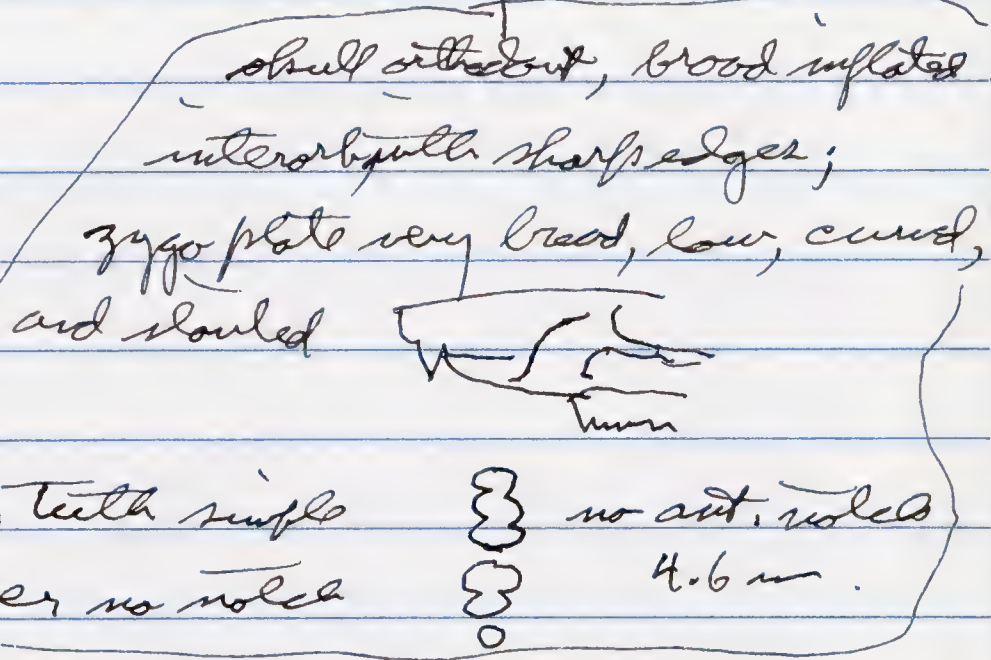 skull orthodont, broad inflated
interorb, with sharp edges;
zygo plate very broad, low, curved,
and slanted
Teeth simple no ant. notch
er no notch 4.6 m